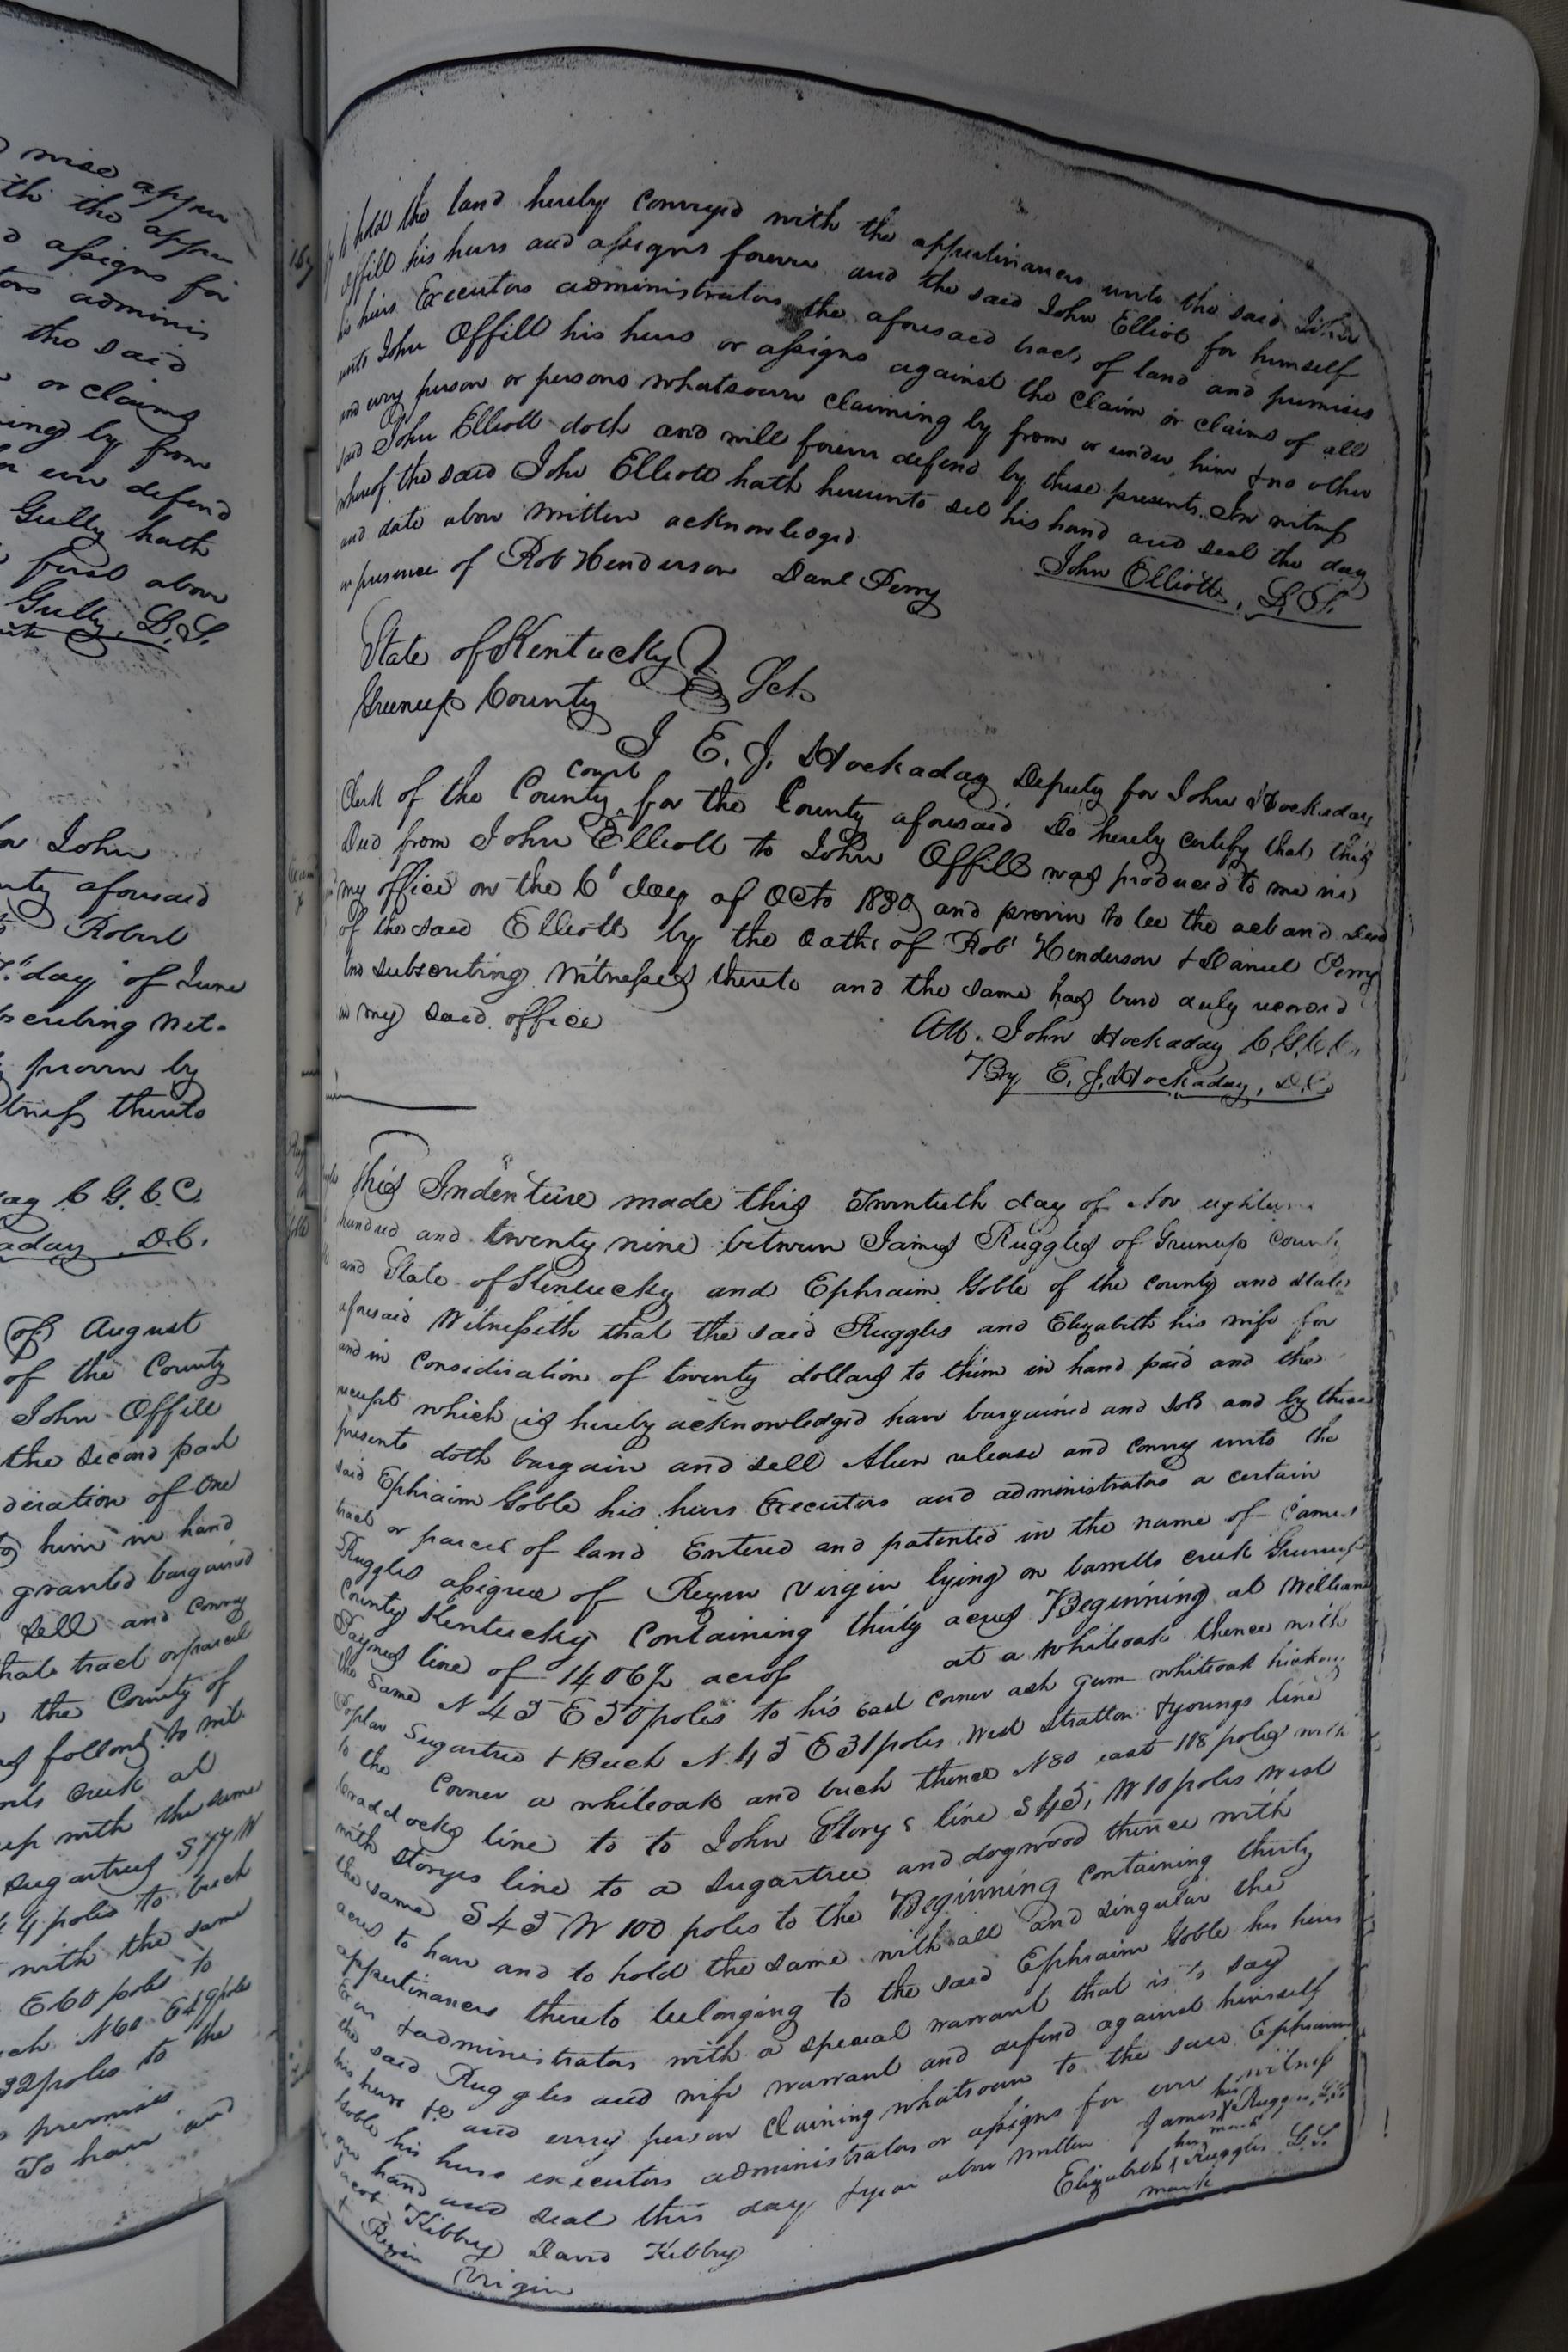 wise appur
th the appur
d assigns for
tors adminis
the said
or claims
ing by from
ever defend
Gully hath
first above
Gully, L.S.
John
nty aforesaid
Robert
day of June
scribing Wit-
proven by
tness thereto
C G C C
aday D.C.
of August
of the County
John Offill
the second part
deration of One
him in hand
granted bargained
sell and convey
that tract or parcel
the County of
as follows to wit
creek at
up with the same
sugartrees S 77 W
4 poles to beech
with the same
E 60 poles to
N 60 E 49 poles
32 poles to the
premises
To have and
to hold the land hereby conveyed with the appurtinances unto the said John
Offill his heirs and assigns forever and the said John Elliott for himself
his heirs Executors administrators the aforesaid tract of land and premises
unto John Offill his heirs or assigns against the claim or claims of all
and every person or persons whatsoever claiming by from or under him & no other
said John Elliott doth and will forever defend by these presents. In witness
whereof the said John Elliott hath hereunto set his hand and seal the day
and date above written acknowledged
in presence of Rob Henderson Danl Perry John Elliott, L.S.
State of Kentucky
Greenup County Sct
I E. J. Hockaday Deputy for John Hockaday
Clerk of the County court for the County aforesaid Do hereby certify that this
Deed from John Elliott to John Offill was produced to me in
my office on the 6t day of Octo 1830 and proven to bee the act and deed
of the said Elliott by the oaths of Robt Henderson & Daniel Perry
two subscribing Witnesses thereto and the same has been duly record
in my said office
Att. John Hockaday C.G.C.C.
By E. J. Hockaday, D.C.
This Indenture made this Twentieth day of Nov eighteen
hundred and twenty nine between James Ruggles of Greenup County
and State of Kentucky and Ephraim Goble of the county and state
aforesaid Witnesseth that the said Ruggles and Elizabeth his wife for
and in consideration of twenty dollars to them in hand paid and the
receipt which is hereby acknowledged have bargained and sold and by these
presents doth bargain and sell Alien release and convey unto the
said Ephraim Goble his heirs Executors and administrators a certain
tract or parcel of land Entered and patented in the name of James
Ruggles asignee of Rezin Virgin lying on barretts creek Greenup
County Kentucky Containing thirty acres Beginning at William
Paynes line of 1406⅔ acres at a whiteoak thence with
the same N 45 E 50 poles to his East corner ash gum whiteoak hickory
Poplar Sugartree & Buch N 45 E 31 poles West Stratton & youngs line
to the corner a whiteoak and buch thence N80 east 118 poles with
Craddocks line to to John Storys line S 45, W 10 poles West
with storyes line to a sugartree and dogwood thence with
the same S 45 W 100 poles to the Beginning containing thirty
acres to have and to hold the same with all and singular the
appertinances thereto belonging to the said Ephraim Goble his heirs
Exrs & administrators with a special warrant that is to say
the said Ruggles and wife warrant and defend against himself
his heirs &c and every person claiming whatsoever to the said Ephraim
Goble his heirs executors administrators or assigns for ever witness
our hand and seal this day & year above written James his X mark Ruggles, L.S.
Jacob Kibby David Kibby Elizabeth her X mark Ruggles L.S.
& Rezin Virgin